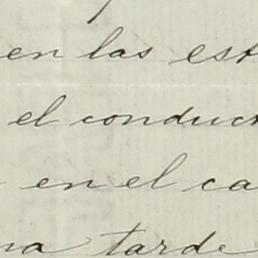 en las est
el conduc
en el ca
na tarde